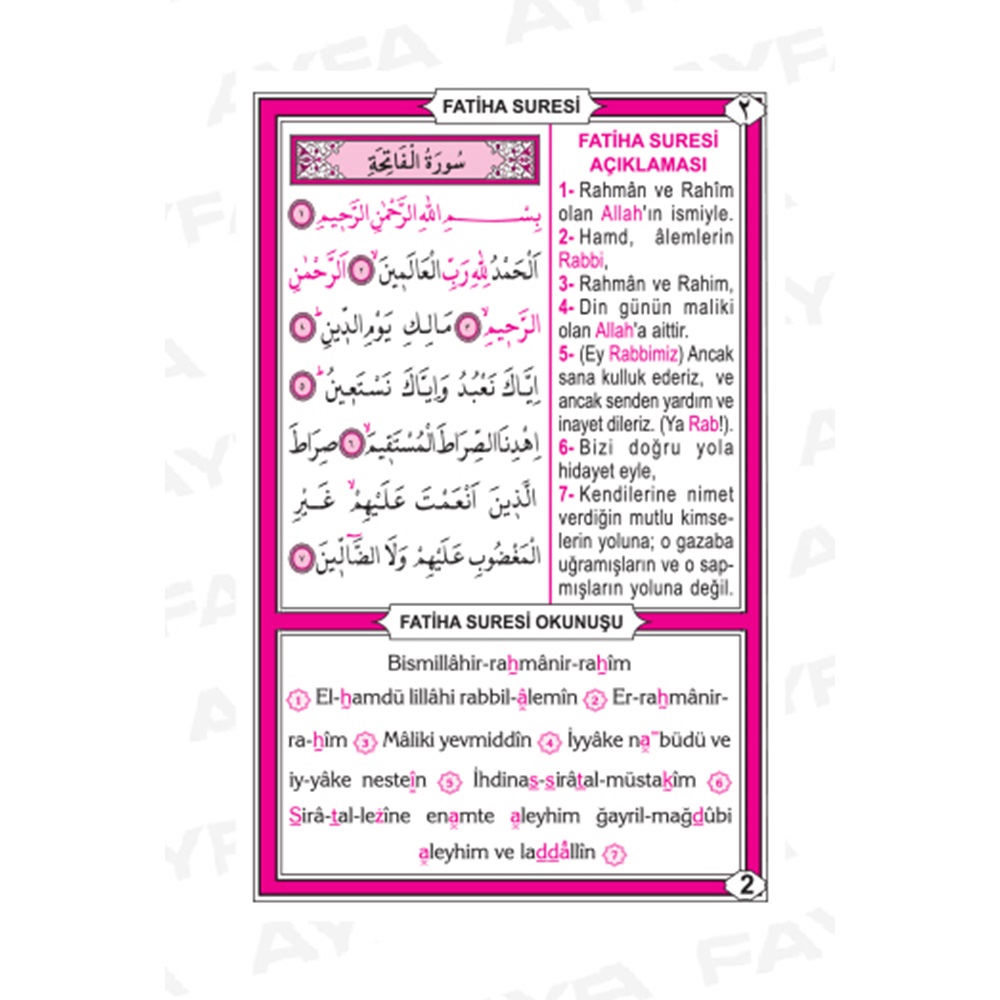 FATİHA SURESİ
٢
سُورَةُ الْفَاتِحَةِ
بِسْمِ اللّٰهِ الرَّحْمٰنِ الرَّح۪يمِ ١
اَلْحَمْدُ لِلّٰهِ رَبِّ الْعَالَم۪ينَۙ ٢ اَلرَّحْمٰنِ
الرَّح۪يمِۙ ٣ مَالِكِ يَوْمِ الدّ۪ينِۜ ٤
اِيَّاكَ نَعْبُدُ وَاِيَّاكَ نَسْتَع۪ينُۜ ٥
اِهْدِنَا الصِّرَاطَ الْمُسْتَق۪يمَۙ ٦ صِرَاطَ
الَّذ۪ينَ اَنْعَمْتَ عَلَيْهِمْۙ غَيْرِ
الْمَغْضُوبِ عَلَيْهِمْ وَلَا الضَّٓالّ۪ينَ ٧
FATİHA SURESİ
AÇIKLAMASI
1- Rahmân ve Rahîm
olan Allah'ın ismiyle.
2- Hamd, âlemlerin
Rabbi,
3- Rahmân ve Rahim,
4- Din günün maliki
olan Allah'a aittir.
5- (Ey Rabbimiz) Ancak
sana kulluk ederiz, ve
ancak senden yardım ve
inayet dileriz. (Ya Rab!).
6- Bizi doğru yola
hidayet eyle,
7- Kendilerine nimet
verdiğin mutlu kimse-
lerin yoluna; o gazaba
uğramışların ve o sap-
mışların yoluna değil.
FATİHA SURESİ OKUNUŞU
Bismillâhir-rahmânir-rahîm
1 El-hamdü lillâhi rabbil-âlemîn 2 Er-rahmânir-
ra-hîm 3 Mâliki yevmiddîn 4 İyyâke na˜büdü ve
iy-yâke nesteîn 5 İhdinas-sirâtal-müstakîm 6
Sirâ-tal-lezîne enamte aleyhim ğayril-mağdûbi
aleyhim ve laddâllîn 7
2
AYFA